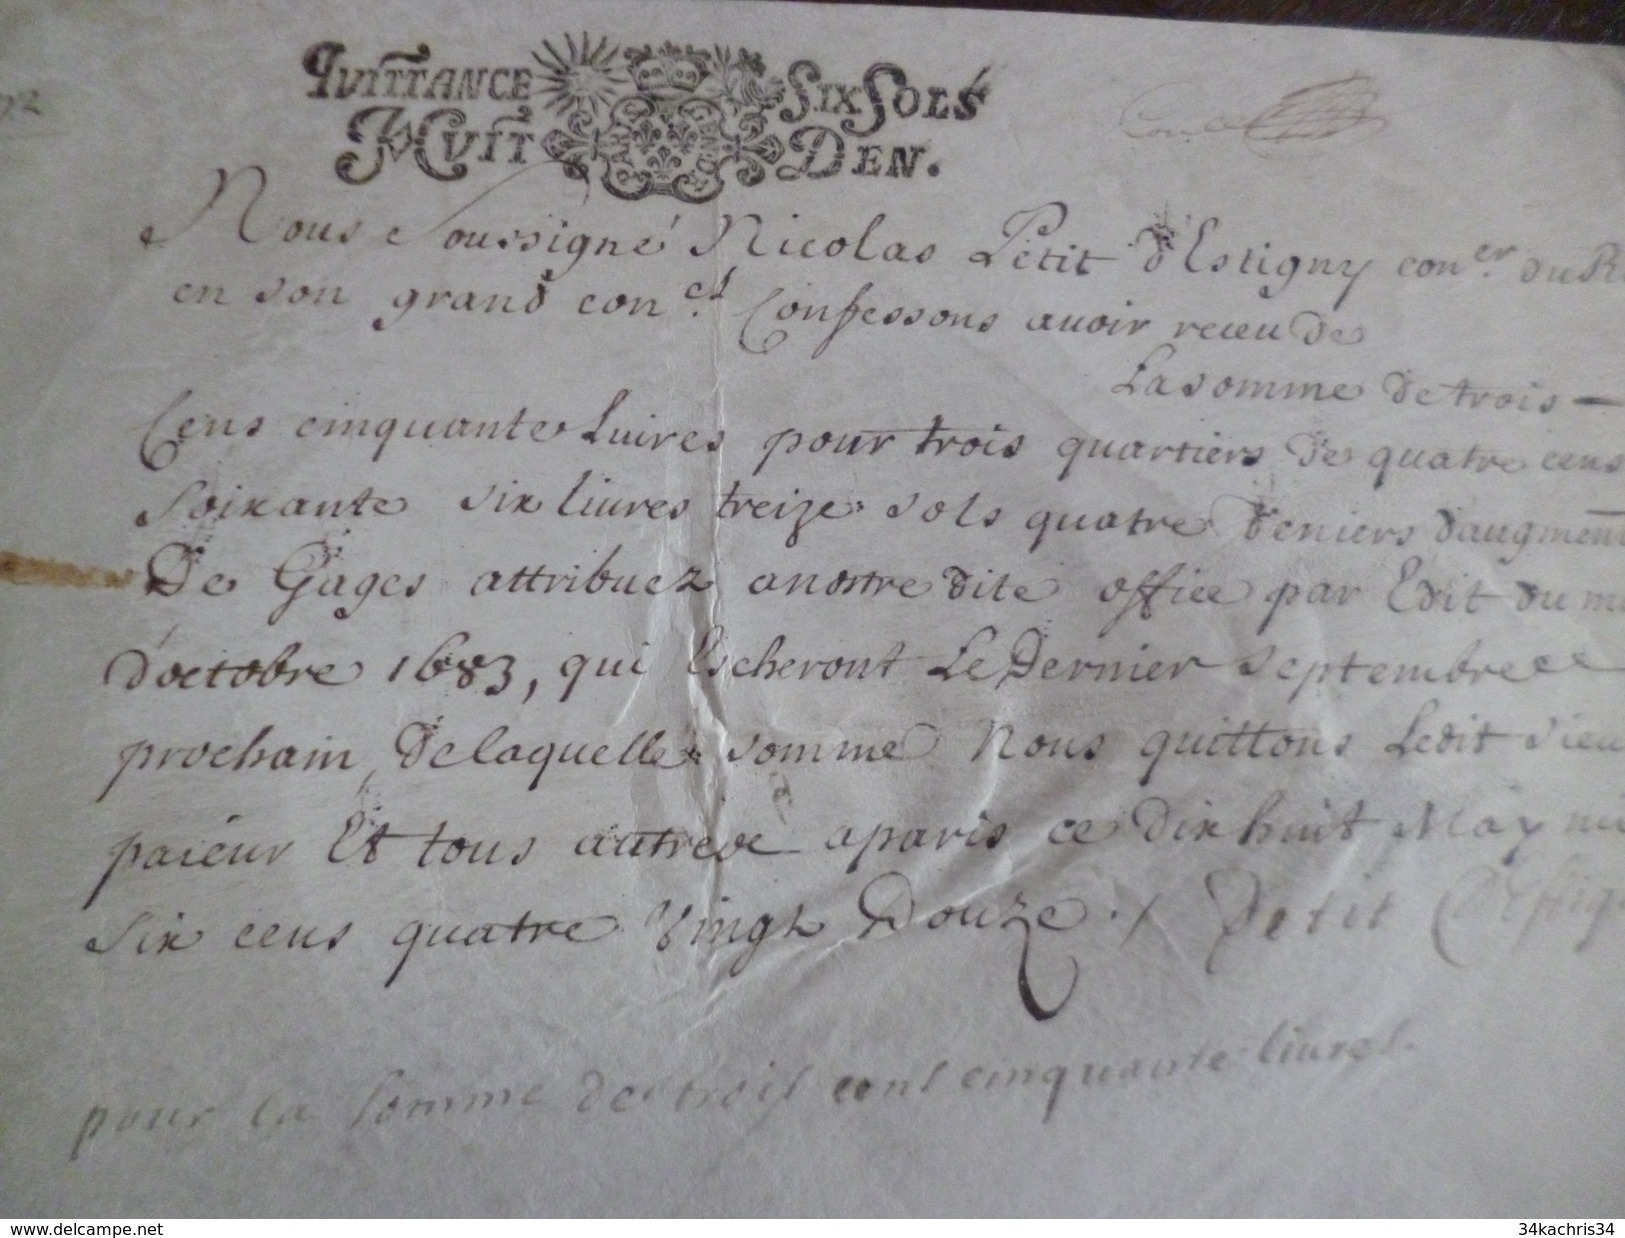 92
QVITTANCE SIX SOLS
HVIT DEN.
PARIS GEN.D
Nous Soussigné Nicolas Petit d'Estigny con.er du R
en son grand con.el Confessons auoir receu de
La somme de trois —
Cens cinquante Liures pour trois quartiers de quatre cens
soixante six liures treize sols quatre deniers d'augment
De Gages attribuez a nostre dite office par Edit du m
d'octobre 1683, qui Escheront Le Dernier septembre
prochain, de laquelle somme Nous quittons Ledit sieu
paieur Et tous autre a paris ce dix huit May mi
six cens quatre Vingt Douze ./ Petit d'Estig
pour la somme de trois cens cinquante liures
www.delcampe.net
34kachris34